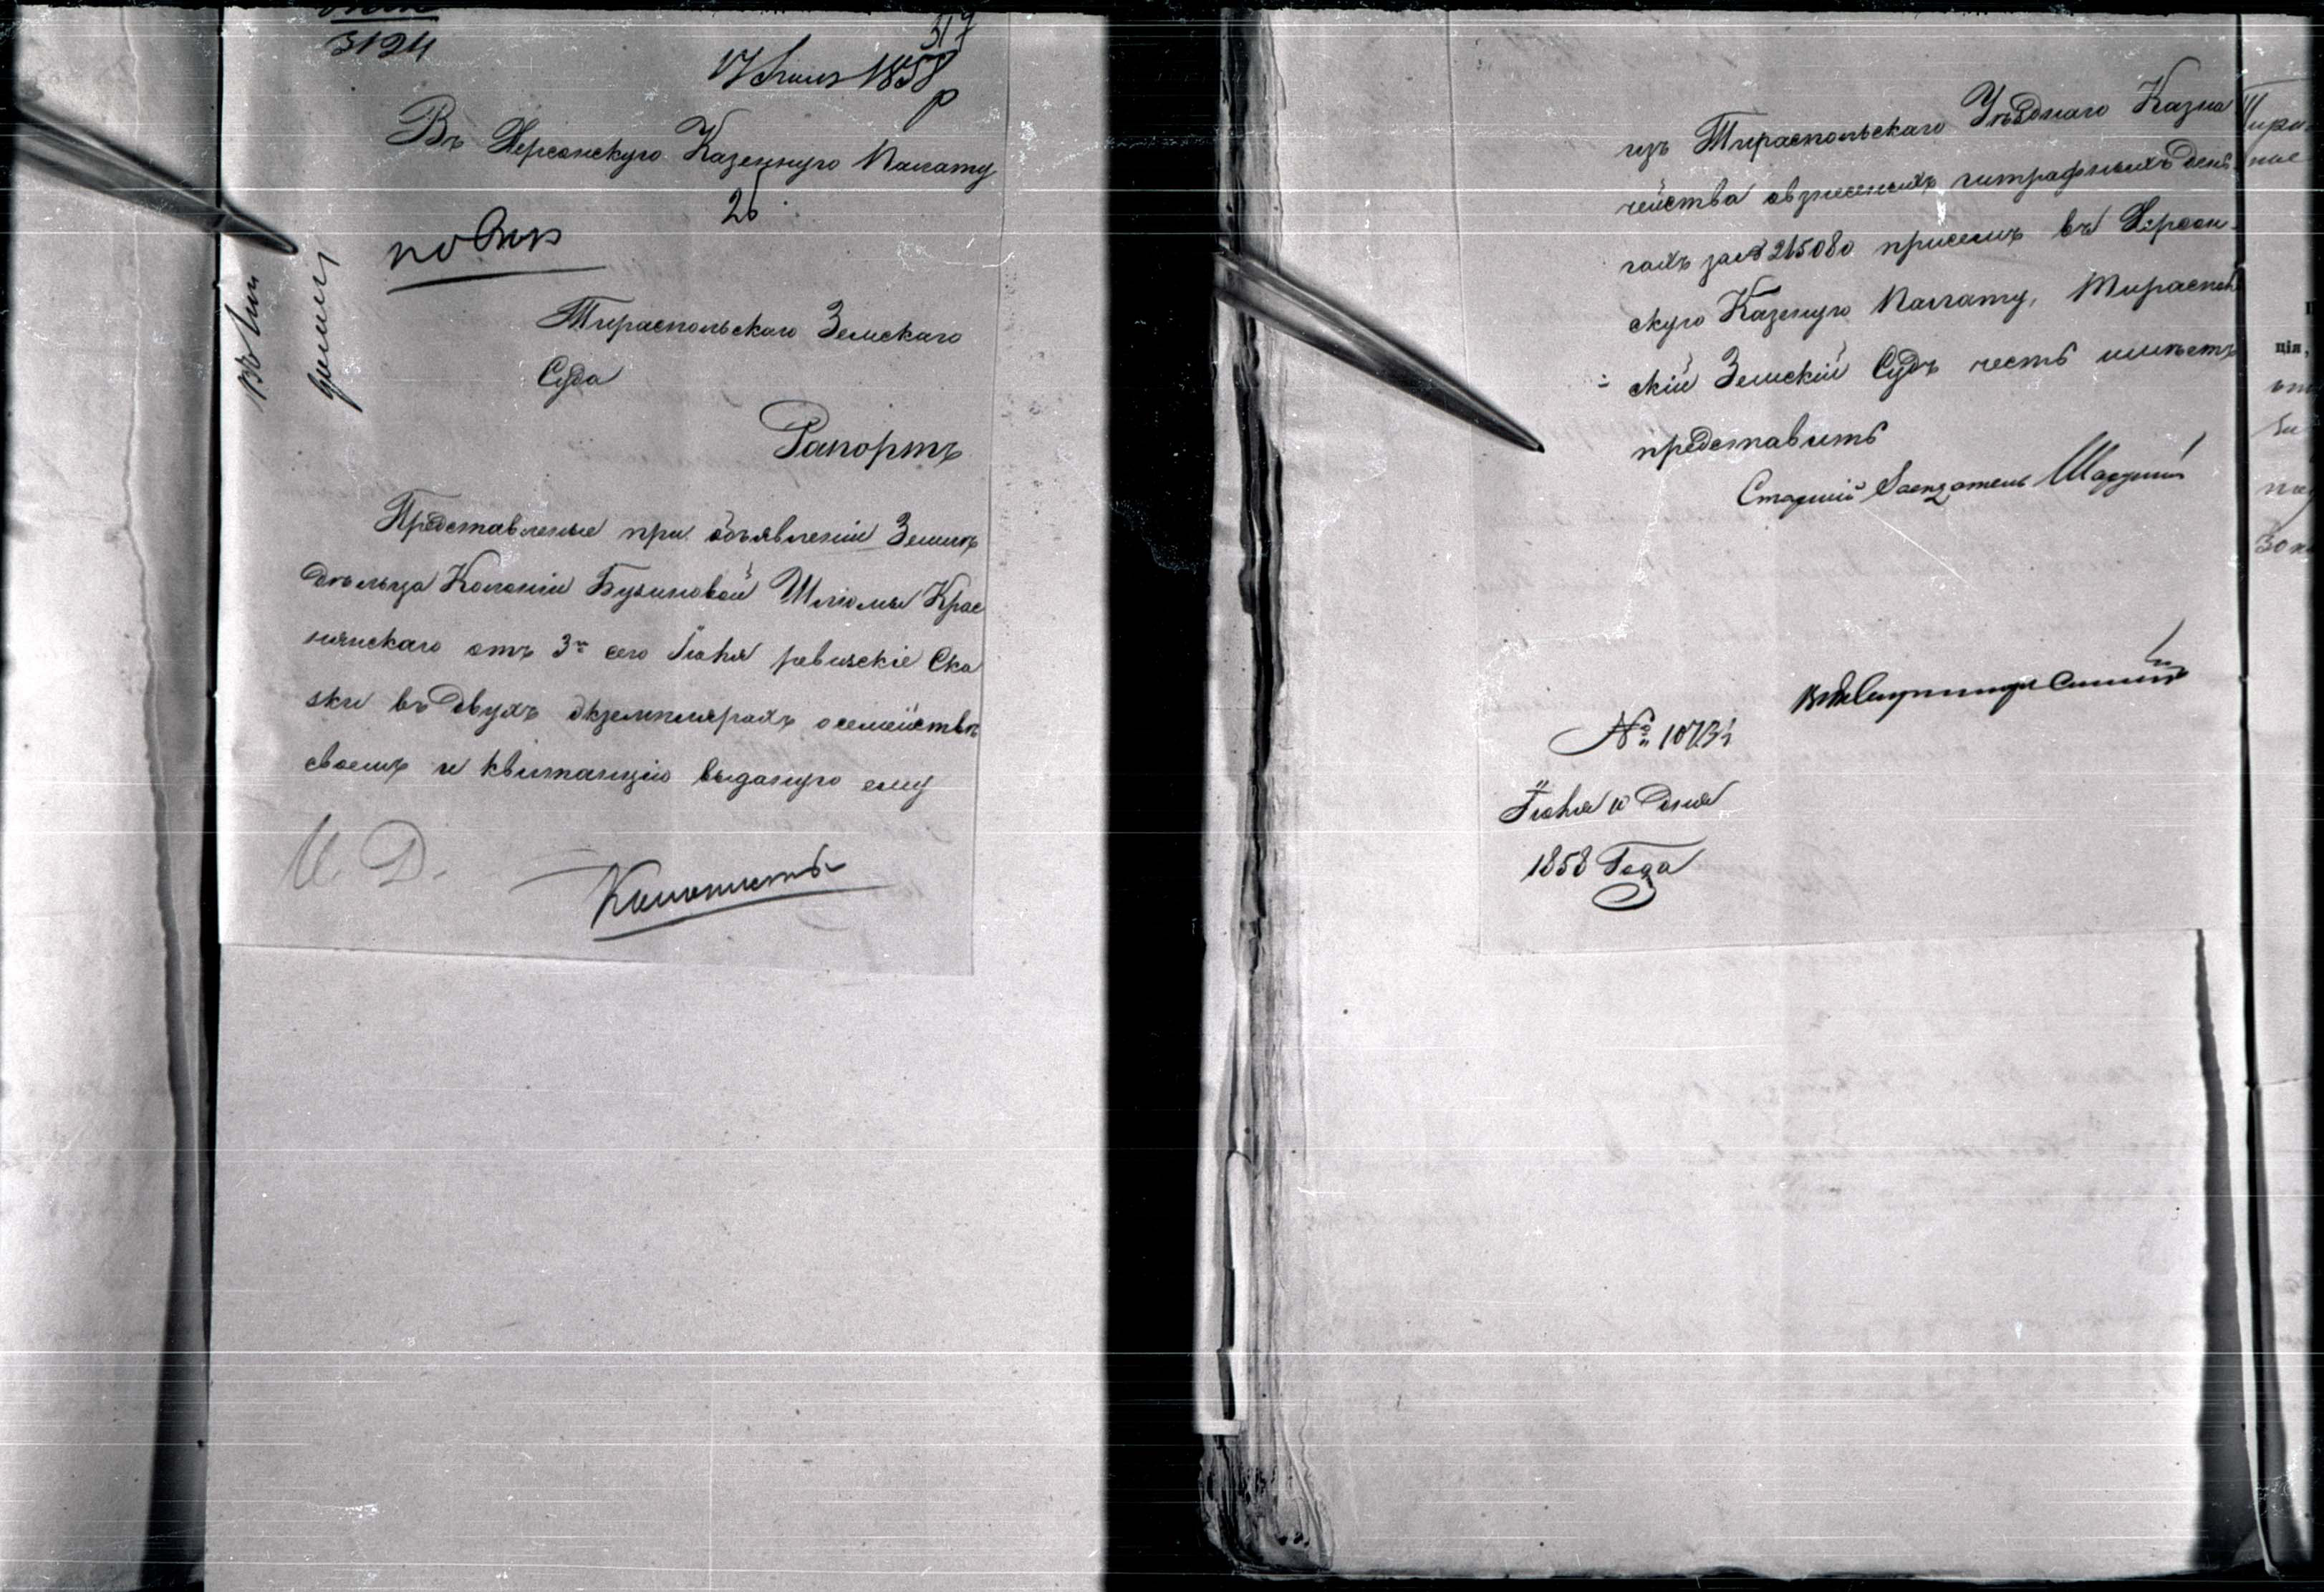 3124
317
17 Іюня 1858
Въ Херсонскую Казенную Палату
26
Тираспольскаго Земскаго
Суда
Рапортъ
Представленые при объявленіи Земле
дѣльца Колоніи Бузиновой Шліомы Крас
нянскаго отъ 3го сего Іюня ревизскіе Ска
зки въ двухъ экземплярахъ о семействѣ
своемъ и квитанцію выданую ему
И. Д.
изъ Тираспольскаго Уѣзднаго Казна
чейства о взнесенихъ штрафныхъ день
гахъ за № 215080 присемъ въ Херсон
скую Казеную Палату, Тирасполь
скій Земскій Судъ честь имѣетъ
представить
Старшій Засѣдатель
№ 10731
Іюня 10 дня
1858 Года
ція,